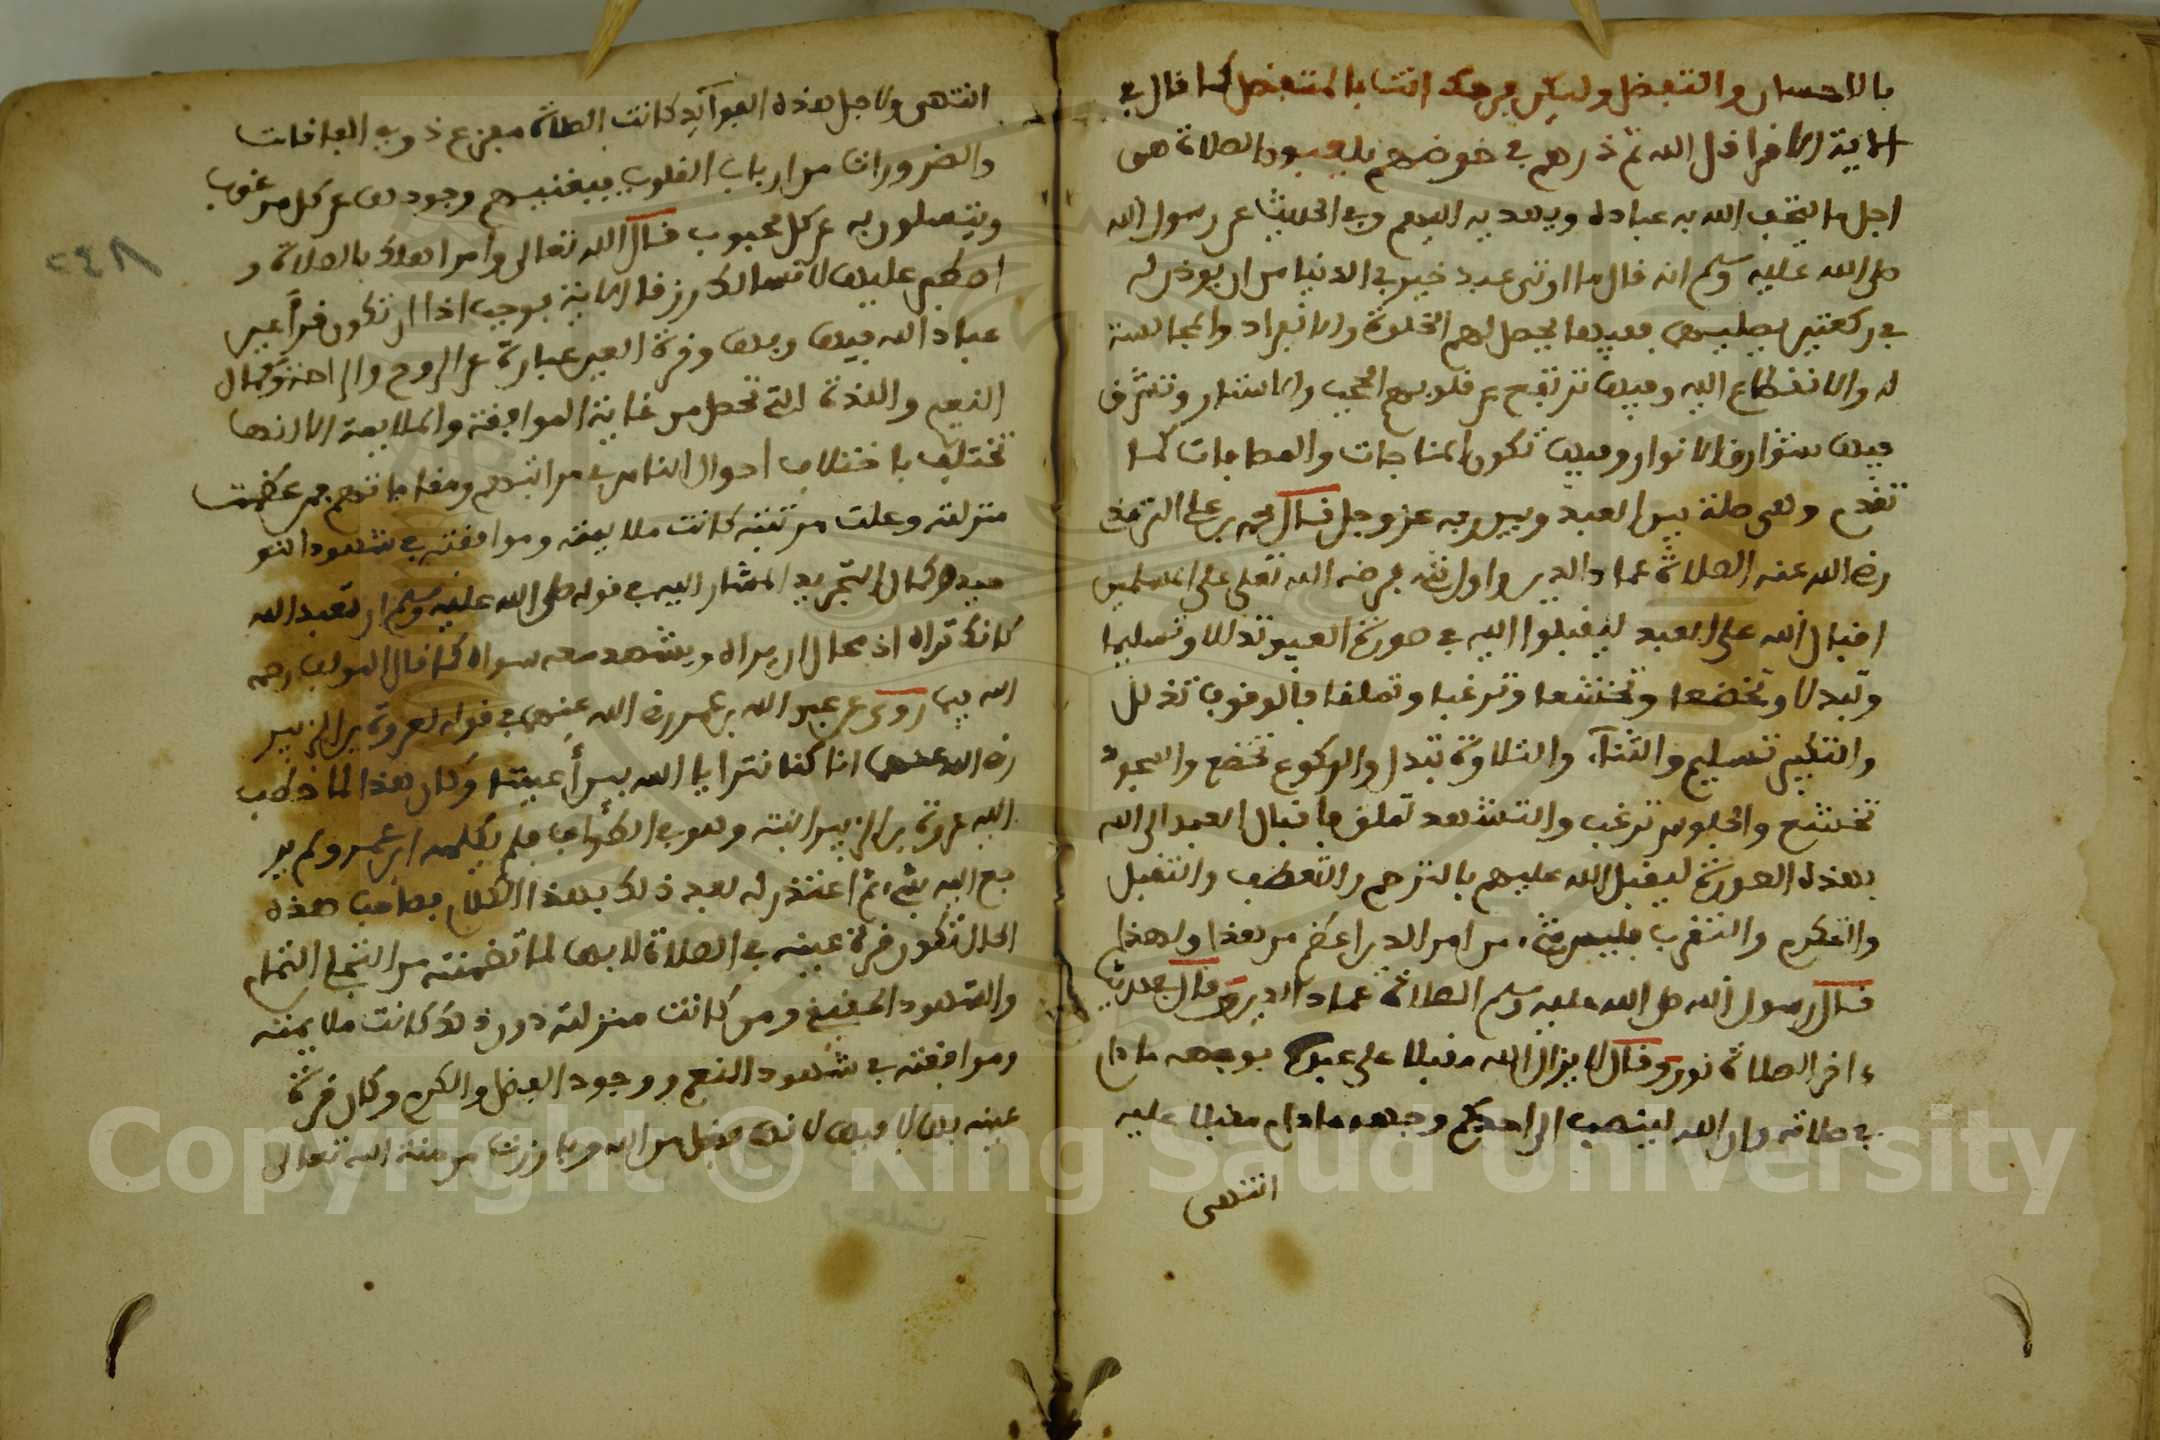 بالاحسان والتفضل وليكن فرحك انت بالمتفضل كما قال في
الاية الاخرا قل الله ثم ذرهم في خوضهم يلعبون الصلاة هي
اجل ما اتحف الله به عباده ويهديه اليهم وفي الحديث عن رسول الله
صلى الله عليه وسلم انه قال ما اوتي عبد خير في الدنيا من ان يوذن له
في ركعتين يصليهما ففيها يحصل لهم الخلوة والانفراد والمجالسة
له والانقطاع اليه وفيها ترتفع عن قلوبهم الحجب والاستار وتشرق
فيها شوارق الانوار وفيها تكون المناجات والمصافات كما
تقدم وهي صلة بين العبد وبين ربه عز وجل قال محمد بن علي الترمذي
رضي الله عنه الصلاة عماد الدين واول شيء فرضه الله تعلى على المسلمين
اقبال الله على العبد ليقبلوا اليه في صورة العبيد تذللا وتسليما
وتبذلا وتخضعا وتخشعا وترغبا وتملقا فالوقوف تذلل
والتكبير تسليم والثناء والتلاوة تبذل والركوع تخضع والسجود
تخشع والجلوس ترغب والتشهد تملق فاقبال العبد الى الله
بهذه الصورة ليقبل الله عليهم بالترحم والتعطف والتقبل
والتكرم والتقرب فليس شيء من امر الدين اعظم من هذا ولهذا
قال رسول الله صلى الله عليه وسلم الصلاة عماد الدين وقال في حديث
ءاخر الصلاة نور وقال لا يزال الله مقبلا على عبده بوجهه ما دام
في صلاته وان الله لينصب الى احدكم وجهه ما دام مقبلا عليه
انتهى
انتهى ولاجل هذه الفوآيد كانت الصلاة مفزع ذوي الفاقات
والضرورات من ارباب القلوب فيغنيهم وجودها عن كل مرغوب
ويتسلون به عن كل محبوب قال الله تعالى وامر اهلك بالصلاة و
اصطبر عليها لا نسالك رزقا الاية
عباد الله فيها وبها وقرة العين عبارة عن الروح والراحة وكمال
النعيم واللذة التي تحصل من غاية الموافقة والملايمة الا انها
تختلف باختلاف احوال الناس في مراتبهم ومقاماتهم فمن عظمت
منزلته وعلت مرتبته كانت ملايمته وموافقته في شهود التو
حيد وكمال التجريد المشار اليه في قوله صلى الله عليه وسلم ان تعبد الله
كانك تراه اذ محال ان يراه ويشهد معه سواه كما قال المولف رحمه
الله روي عن عبد الله بن عمر رضي الله عنهما في قوله لعروة بن الزبير
رضي الله عنهما انا كنا نترايا الله بين أعيننا وكان هذا لما خطب
اليه عروة بن الزبير ابنته وهو في الطواف فلم يكلمه ابن عمر ولم ير
جع اليه بشيء ثم اعتذر له بعد ذلك بهذا الكلام فصاحب هذه
الحال تكون قرة عينه في الصلاة لا بها لما تضمنته من التجلي التام
والشهود الحقيقي ومن كانت منزلته دون ذلك كانت ملايمته
وموافقته في شهود النعم ووجود الفضل والكرم وكان قرة
عينه بها لا فيها لانها فضل من الله وبارزة من منة الله تعالى
٢٤٨
Copyright © King Saud University